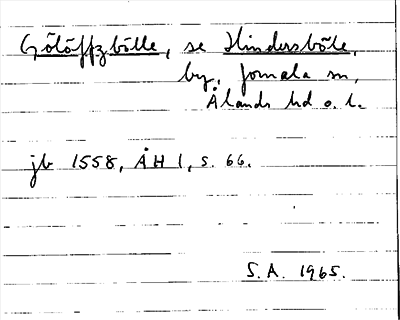 Götöffzbölle, se Hindersböle,
by, Jomala sn,
Ålands hd o. l.
jb 1558, ÅH 1, s. 66.
S.A. 1965.